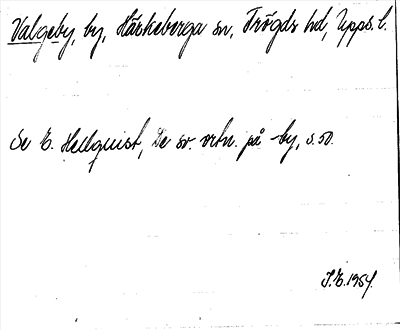 Valgeby, by, Härkeberga sn, Trögds hd, Upps. l.
Se E. Hellquist, De sv. ortn. på -by, s. 50.
S.E. 1954.